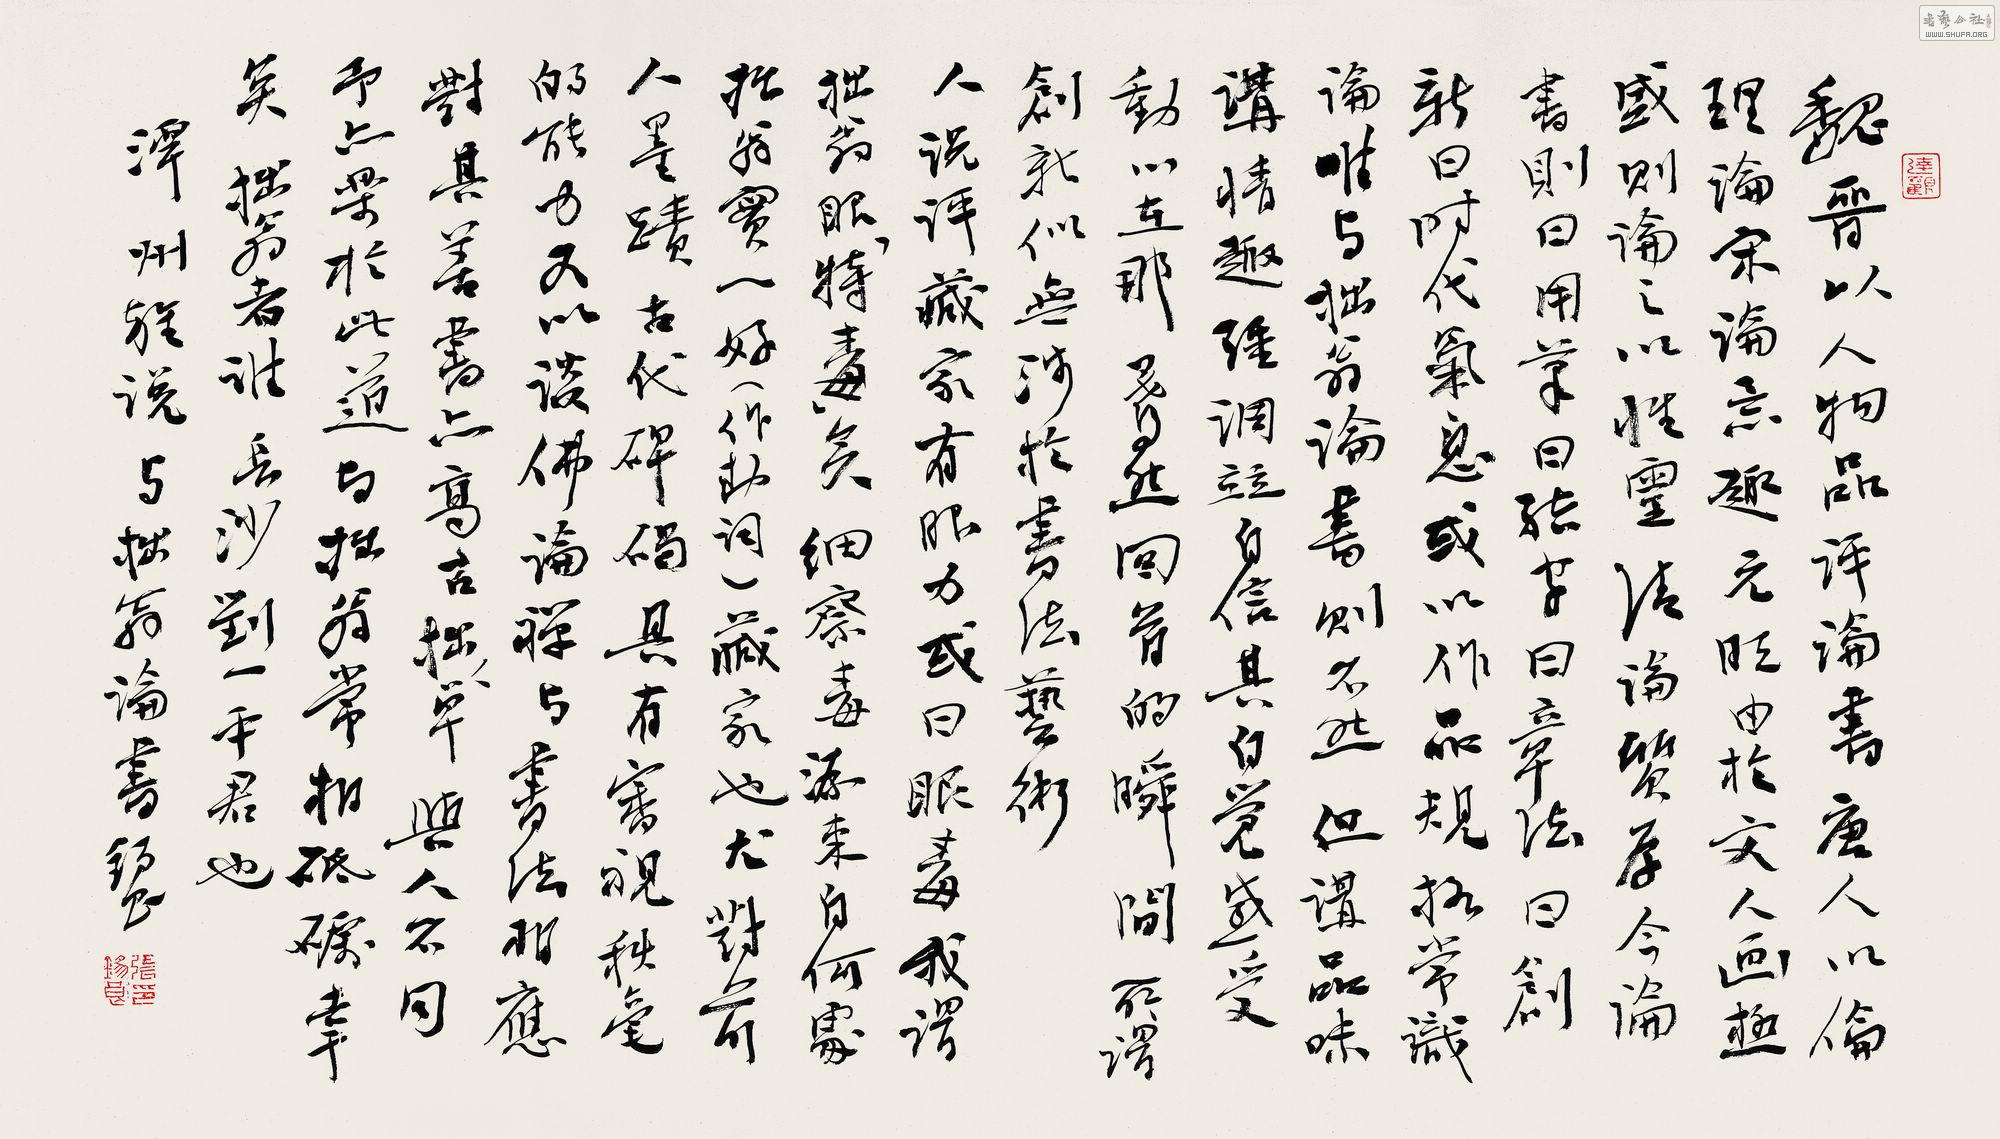 魏晉以人物品評論書唐人以倫
理論宋論意趣元明由於文人画極
盛則論之以性靈清論質厚今論
書則曰用筆曰結字曰章法曰創
新曰时代氣息或以作品規格常識
論唯与拙翁論書則不然但講品味
講情趣强調立自信具自覺感受
動心在那蓦然回首的瞬間所謂
創新似無涉於書法藝術
人说评藏家有眼力或曰眼毒我謂
拙翁眼特毒矣细察毒源来自何處
拙翁實一好（作动词）藏家也尤對前
人墨蹟古代碑碣具有審視秋毫
的能力又以談佛論禪与書法相應
對其善書亦高古拙率與人不同
予亦樂於此道与拙翁常相砥礪幸
矣拙翁者谁長沙劉一平君也
潭州雜说与拙翁論書 錫良
達觀
張錫良印
书艺公社
WWW.SHUFA.ORG